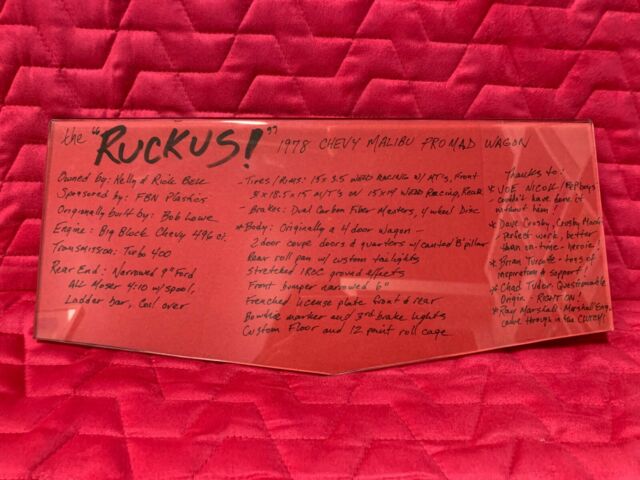 the "RUCKUS!" 1978 CHEVY MALIBU PROMAD WAGON
Owned by: Kelly & Rick Bell
Sponsored by: FBN Plastics
Originally built by: Bob Lowe
Engine: Big Block Chevy 496 ci.
Transmission: Turbo 400
Rear End: Narrowed 9" Ford
ALL Moser 4:10 w/spool,
Ladder bar, Coil over
- Tires/Rims: 15 x 3.5 WELD RACING w/ MT's, Front
x 18.5 x 15 M/T's on 15x14 WELD Racing, Rear
- Brakes: Dual Carbon Fiber Masters, 4 wheel Disc
*Body: Originally a 4 door wagon -
2 door coupe doors & quarters w/ canted B'pillar
Rear roll pan w/ custom taillights
Stretched IROC ground effects
Front bumper narrowed 6"
Frenched license plate front & rear
Bowtie marker and 3rd brake lights
Custom Floor and 12 point roll cage
Thanks to:
*JOE NICOLL / Pepboys
couldn't have done it
without him!
*Dave Crosby, Crosby
perfect work, better
than on-time - heroic!
*Brian - tons of
inspiration & support!
*Chad Tudor, Questionable
Origin - RIGHT ON!
*Ray Marshall - Marshall Eng.
came through in the CLUTCH!